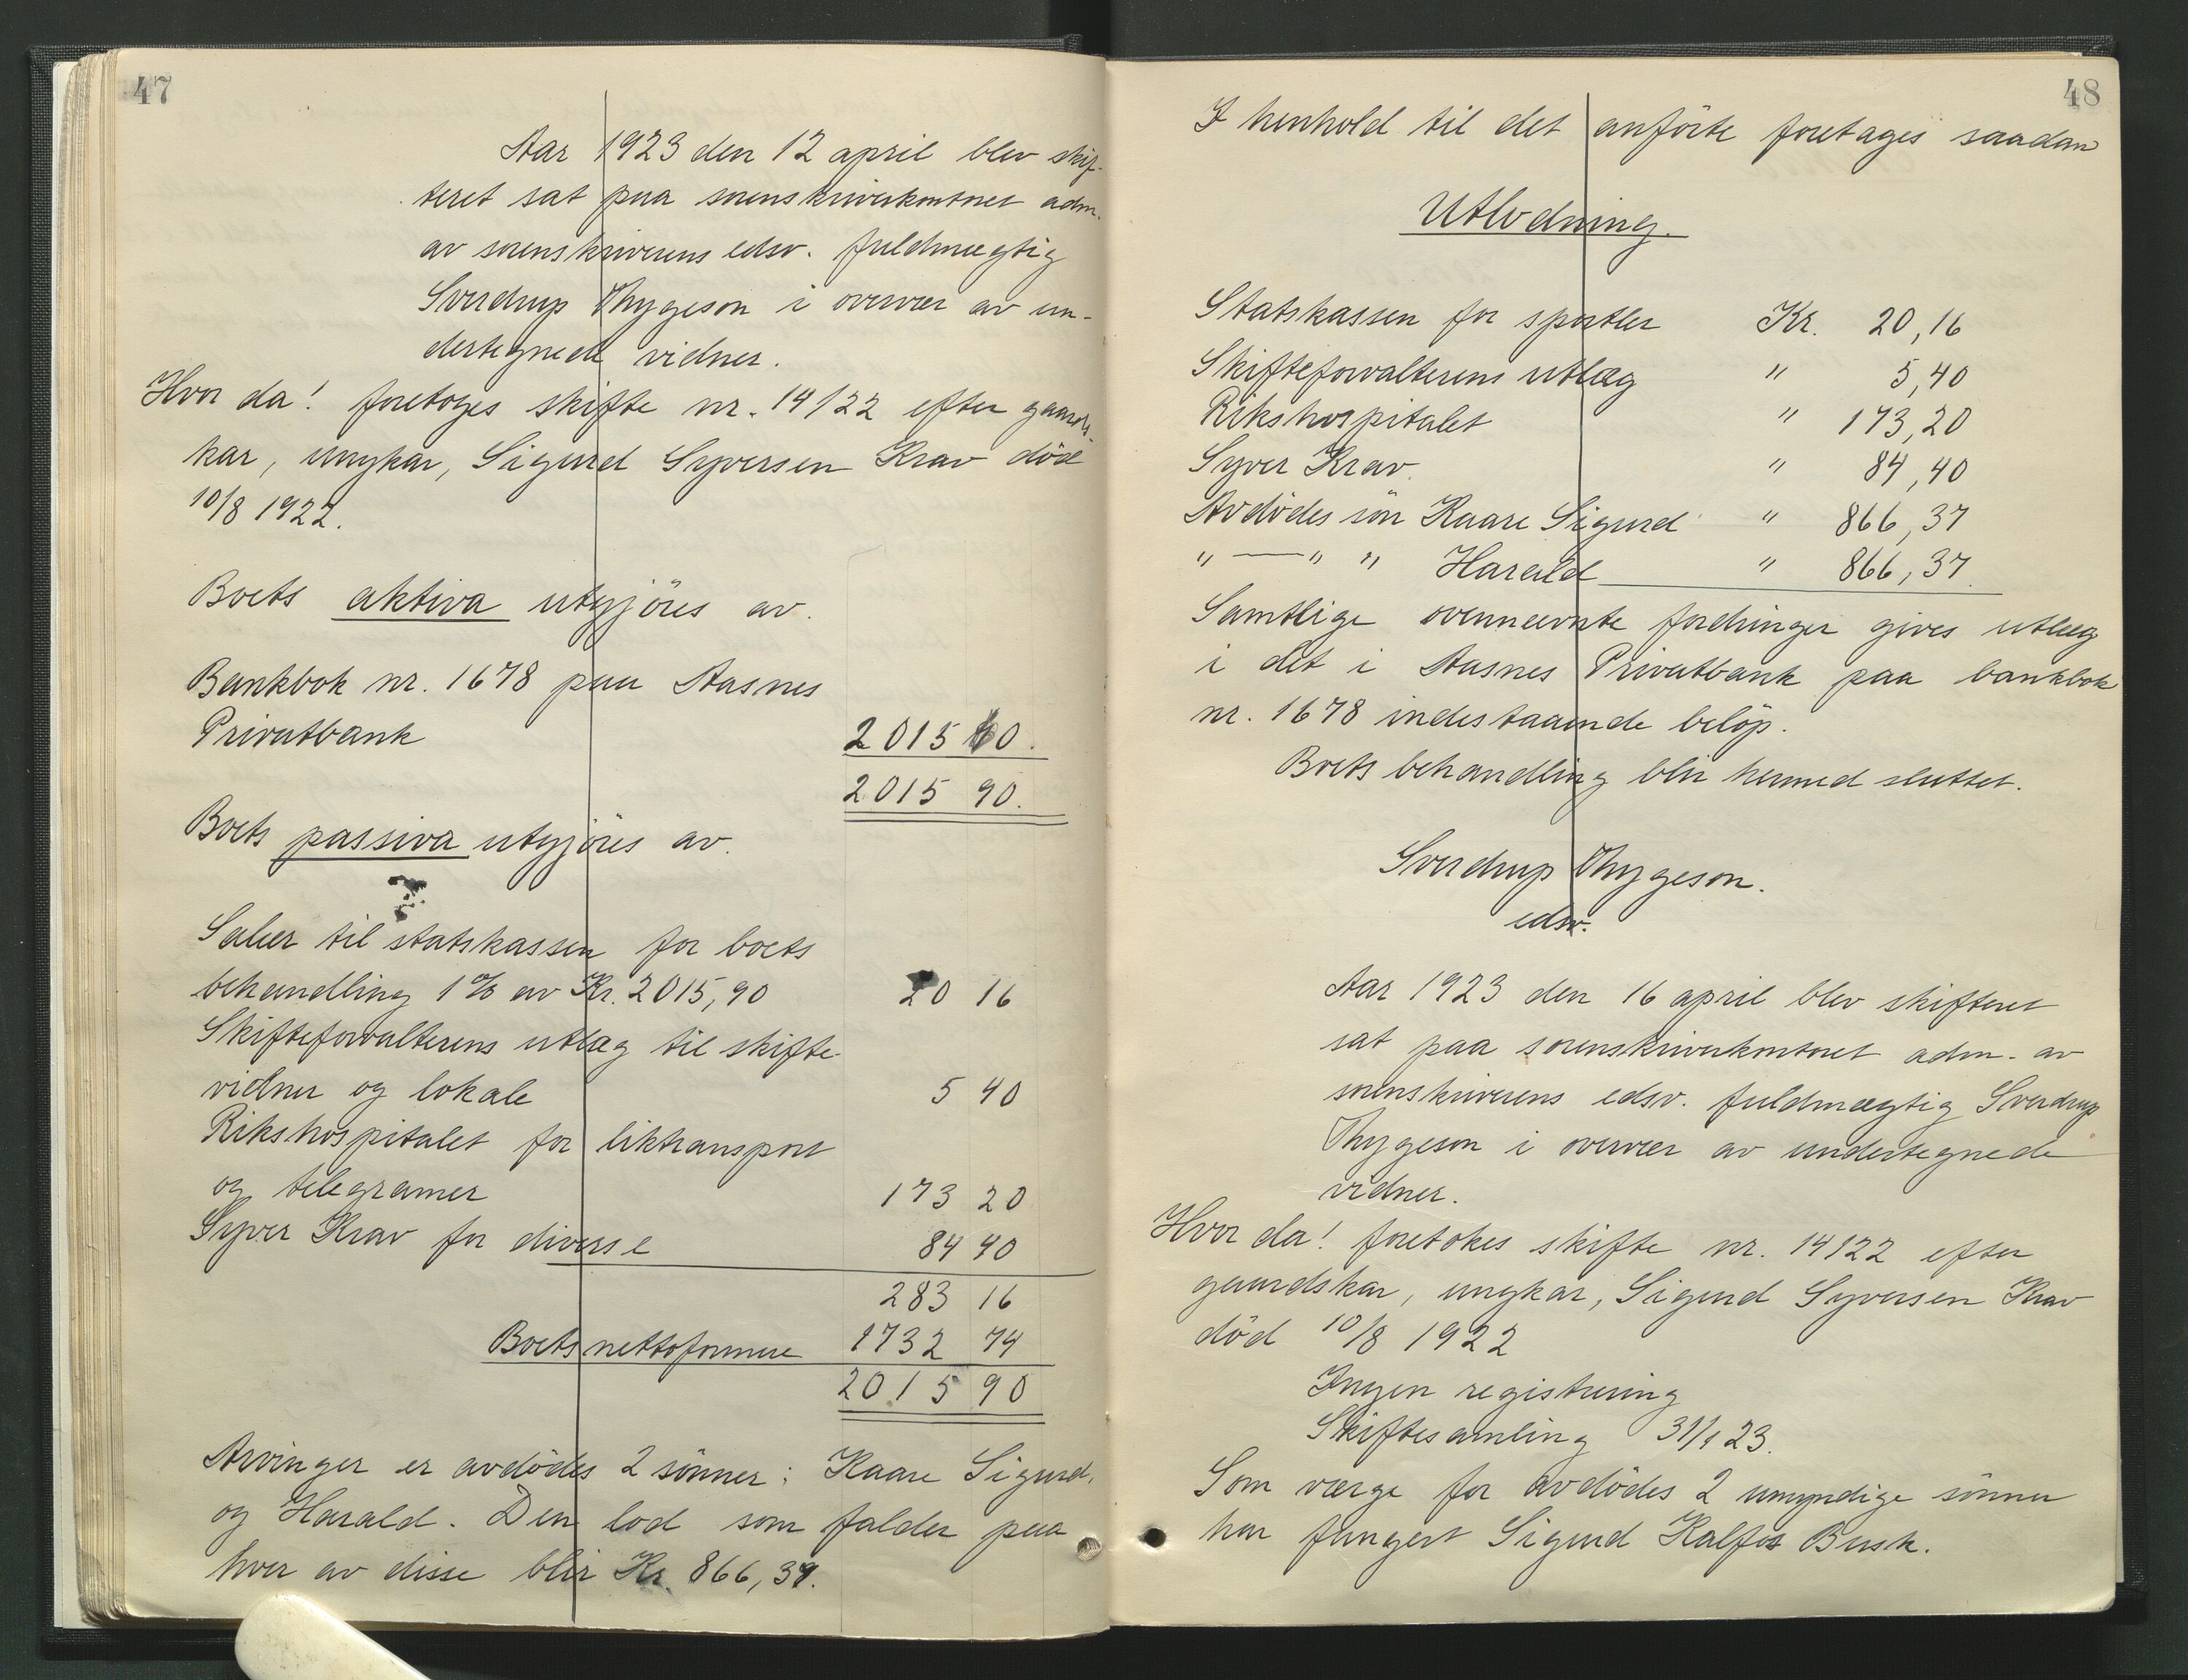 47
Aar 1923 den 12 april blev skif-
teret sat paa sorenskriverkontoret adm.
av sorenskriverens edsv. fuldmægtig
Sverdrup Thygeson i overvær av un-
dertegnede vidner.
Hvor da! foretoges skifte nr. 14/22 efter gaards-
kar, ungkar, Sigurd Syversen Krav död
10/8 1922.
Boets aktiva utgjöres av.
Bankbok nr. 1678 paa Aasnes
Privatbank 2015 90.
2015 90.
Boets passiva utgjöres av.
Salær til statskassen for boets
behandling 1% av Kr. 2015,90 20 16
Skifteforvalterens utlæg til skifte-
vidner og lokale 5 40
Rikshospitalet for liktransport
og telegramer 173 20
Syver Krav for diverse 84 40
283 16
Boets nettoformue 1732 74
2015 90
Arvinger er avdödes 2 sönner: Kaare Sigurd,
og Harald. Den lod som falder paa
hver av disse blir Kr. 866,37.
48
I henhold til det anförte foretages saadan
Utlodning.
Statskassen for sportler Kr. 20,16
Skifteforvalterens utlæg " 5,40
Rikshospitalet " 173,20
Syver Krav " 84,40
Avdödes sön Kaare Sigurd " 866,37
" — " " Harald " 866,37
Samtlige ovennævnte fordringer gives utlæg
i det i Aasnes Privatbank paa bankbok
nr. 1678 indestaaende belöp.
Boets behandling blir hermed sluttet.
Sverdrup Thygeson.
edsv.
Aar 1923 den 16 april blev skifteret
sat paa sorenskriverkontoret adm. av
sorenskriverens edsv. fuldmægtig Sverdrup
Thygeson i overvær av undertegnede
vidner.
Hvor da! foretokes skifte nr. 14122 efter
gaardskar, ungkar, Sigurd Syversen Krav
död 10/8 1922
Ingen registrering
Skiftesamling 31/1 23.
Som værge for avdödes 2 umyndige sönner
har fungert Sigurd Kalfos Busk.